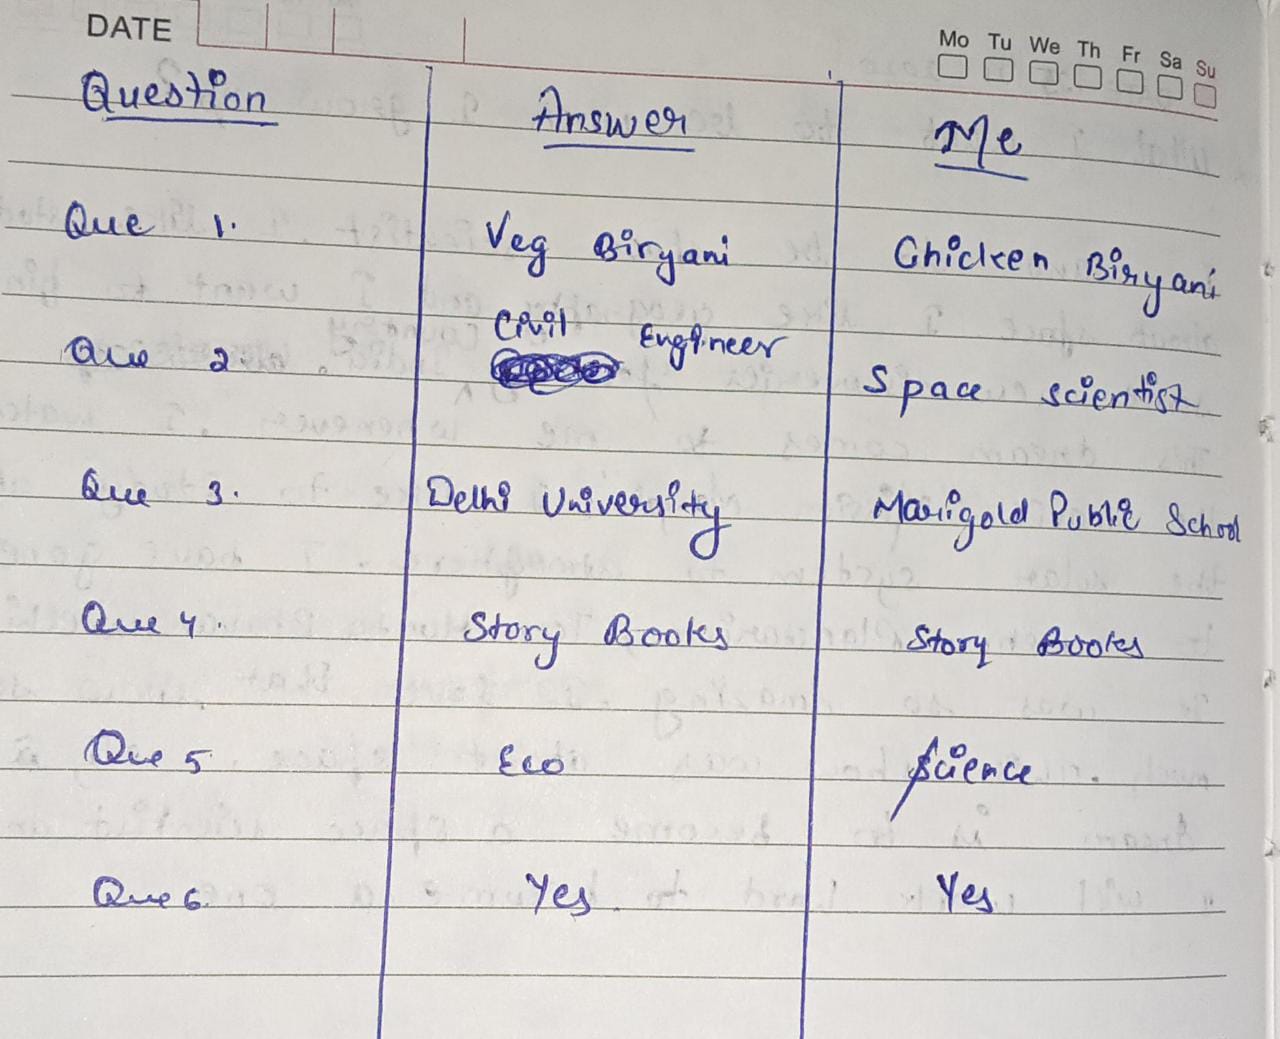 DATE
Mo Tu We Th Fr Sa Su
Question Answer Me
Que 1. Veg Biryani Chicken Biryani
Que 2. Civil Engineer Space scientist
Que 3. Delhi University Marigold Public School
Que 4. Story Books Story Books
Que 5. Eco Science
Que 6. Yes Yes